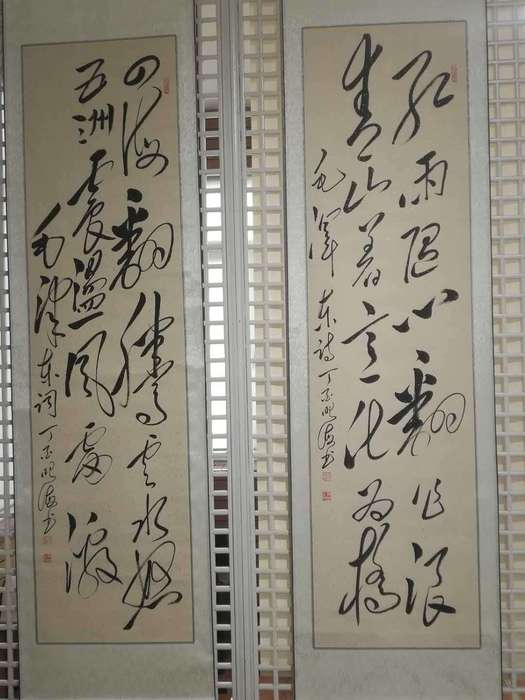 红雨随心翻作浪
青山着意化为桥
毛泽东诗 丁亥 海书
四海翻腾云水怒
五洲震盪风雷激
毛泽东词 丁亥 海书